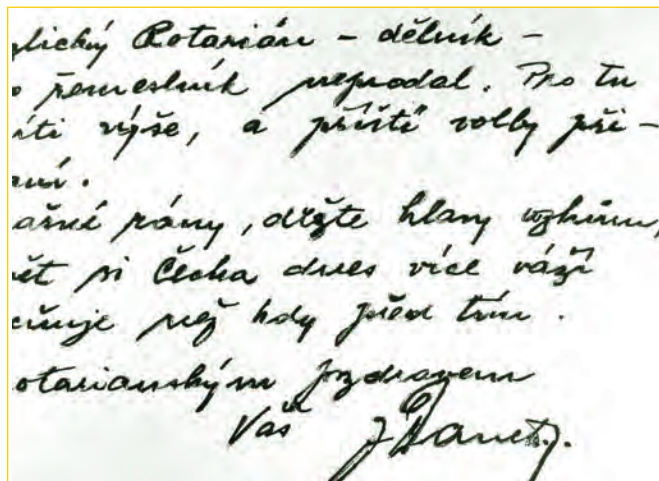 glický Rotarián – dělník –
řemeslník neprodal. Pro tu
výše, a příští volby při–
rány, držte hlavy vzhůru,
si Čecha dnes více váží
než kdy před tím.
otarianským pozdravem
Váš